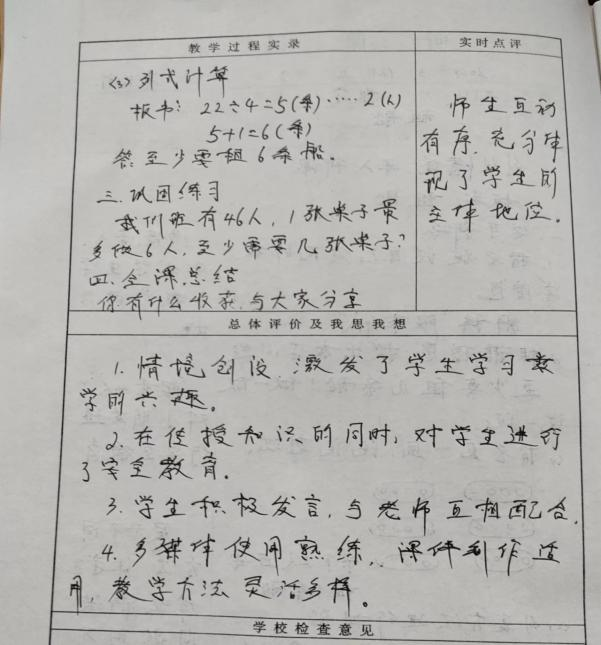 教学过程实录
实时点评
(3) 列式计算
板书: 22÷4=5(条)……2(人)
5+1=6(条)
答:至少要租6条船。
三. 巩固练习
我们班有46人, 1张桌子最
多做6人, 至少需要几张桌子?
四. 全课总结
你有什么收获, 与大家分享
师生互动
有序, 充分体
现了学生的
主体地位。
总体评价及我思我想
1. 情境创设, 激发了学生学习数
学的兴趣。
2. 在传授知识的同时, 对学生进行
了安全教育。
3. 学生积极发言, 与老师互相配合,
4. 多媒体使用熟练, 课件制作适
用, 教学方法灵活多样。
学校检查意见